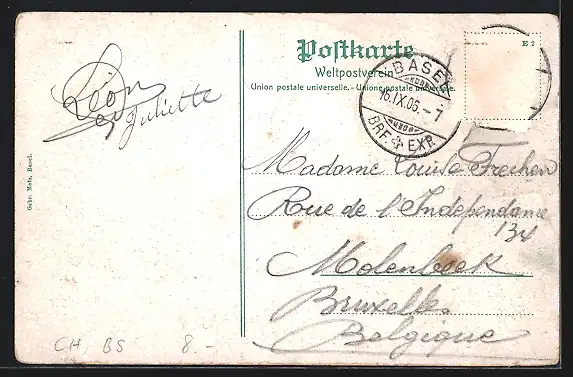 Postkarte
Weltpostverein
Union postale universelle. - Unione postale universale.
E 2
BASEL
16.IX.06.-7
BRF. EXP.
Léon
Juliette
Madame Louise Frechen
Rue de l'Independance
134
Molenbeek
Bruxelles
Belgique
Gebr. Metz, Basel.
CH BS 8.-